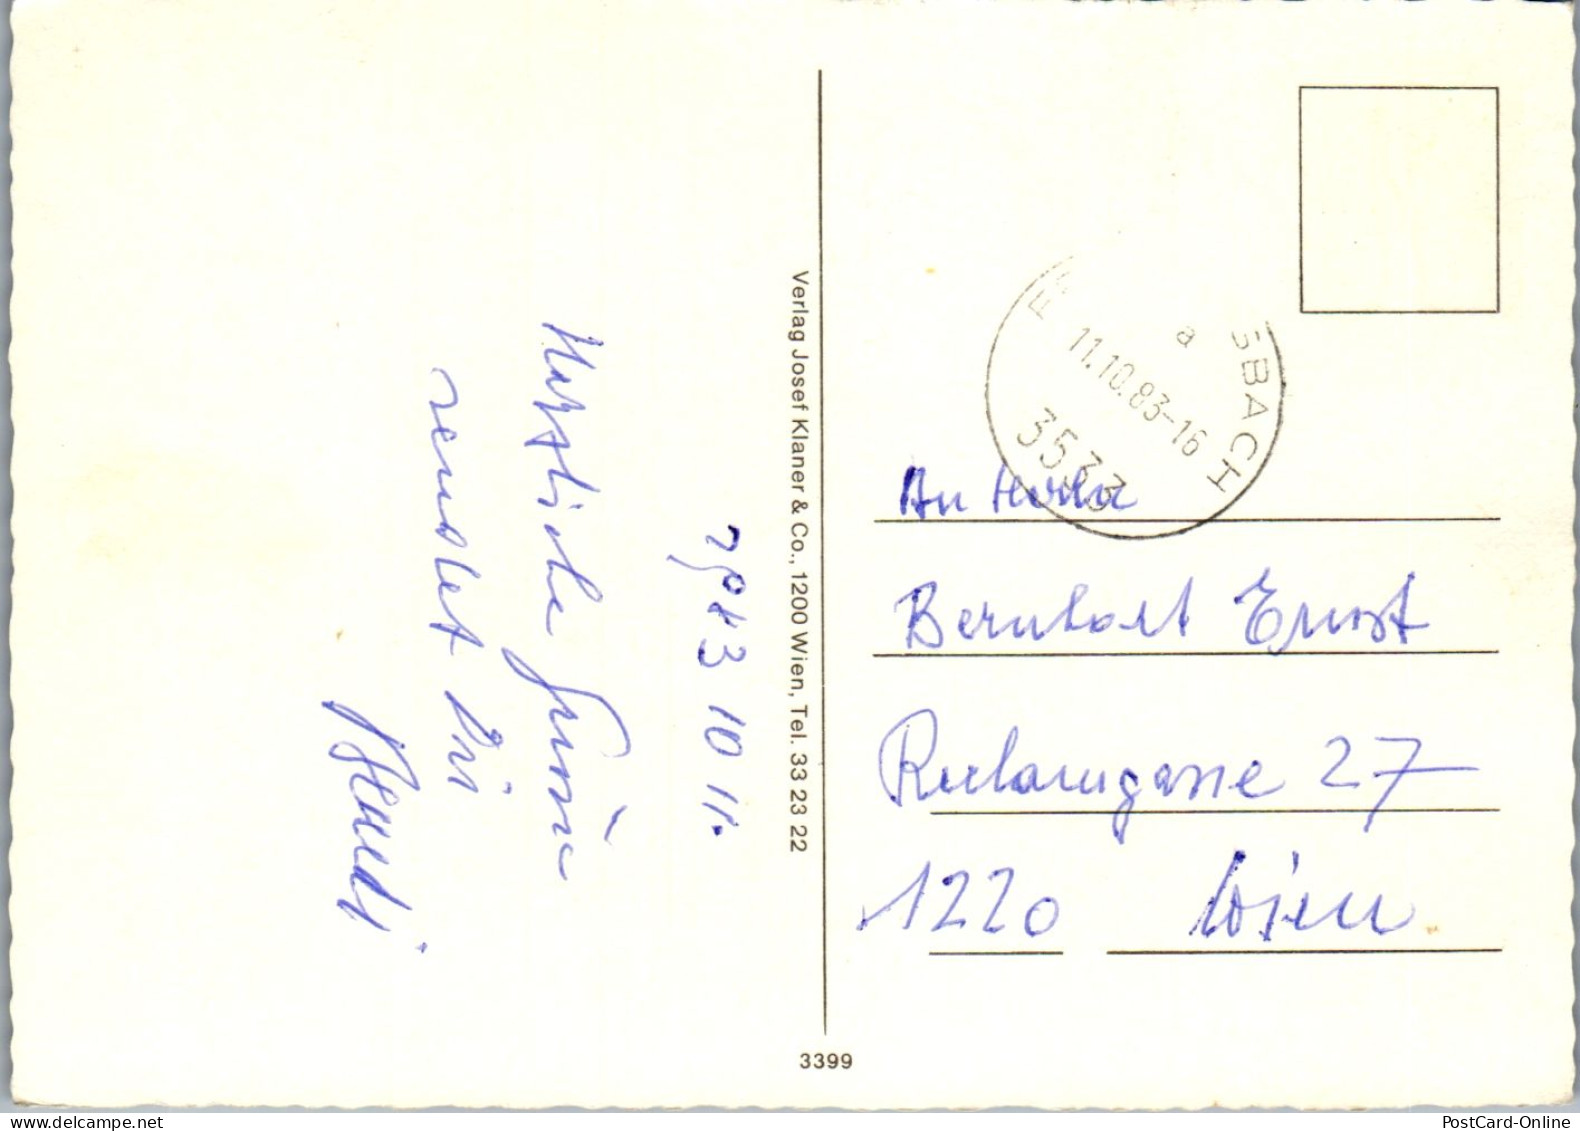 1983 10 11.
Herzliche Grüße
sendet Dir
Verlag Josef Klaner & Co., 1200 Wien, Tel. 33 23 22
3399
SBACH
a
11.10.83-16
3533
An Herrn
Bernhart Ernst
27
1220 Wien
www.delcampe.net
PostCard-Online